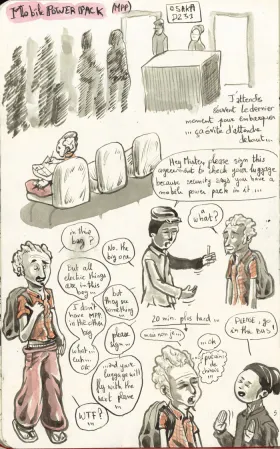 MObile POWER PACK (MPP)
OSAKA
D231
J'attends
souvent le dernier
moment pour embarquer
... ça évite d'attendre
debout...
Hey Mister, please sign this
agreement to check your luggage
because security says you have a
mobile power pack in it...
a what?
in this
bag?
No. the
big one.
But all
electric things
are in this
bag...
I don't
have MPP
in the other
bag
but
they see
something
what...
euh...
ok
please
sign...
...and your
luggage will
fly with the
next plane
WTF?
20 min. plus tard...
... ok
PLEASE, go
in the BUS